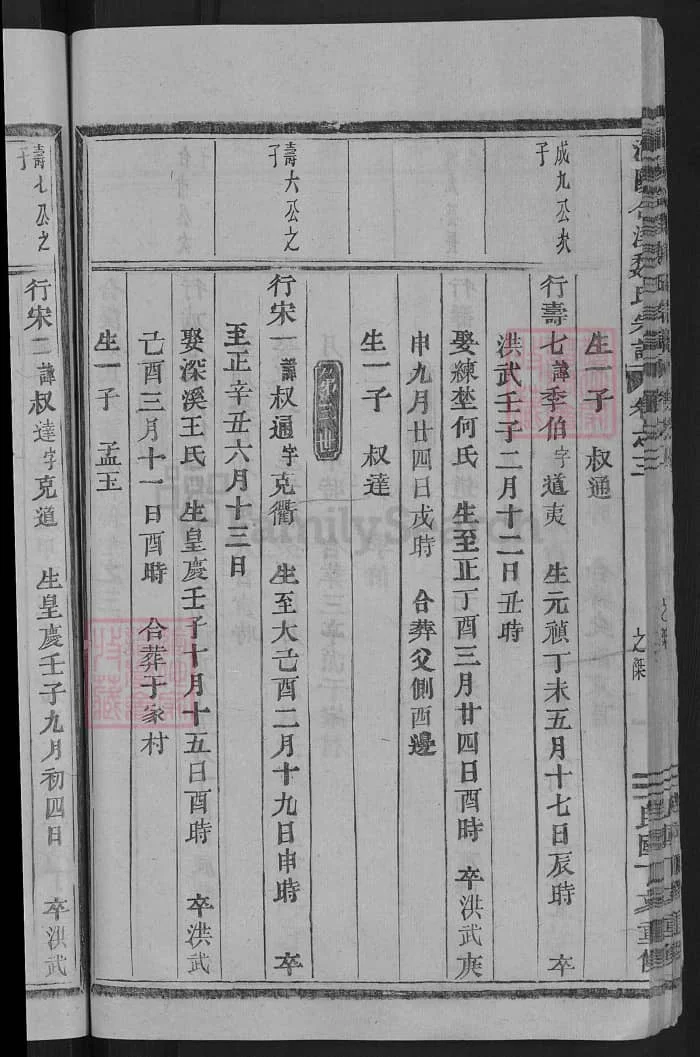 魏氏宗譜 卷之三
之傑
民國
生一子 叔通
成九公次子
行壽七諱季伯字道夷 生元禎丁未五月十七日辰時 卒
洪武壬子二月十二日丑時
娶練埜何氏 生至正丁酉三月廿四日酉時 卒洪武庚
申九月廿四日戌時 合葬父側酉邊
生一子 叔達
壽六公之子
行宋一諱叔通字克衢 生至大己酉二月十九日申時 卒
至正辛丑六月十三日
娶深溪王氏 生皇慶壬子十月十五日酉時 卒洪武
己酉三月十一日酉時 合葬于家村
生一子 孟玉
壽七公之子
行宋二諱叔達字克道 生皇慶壬子九月初四日 卒洪武
FamilySearch